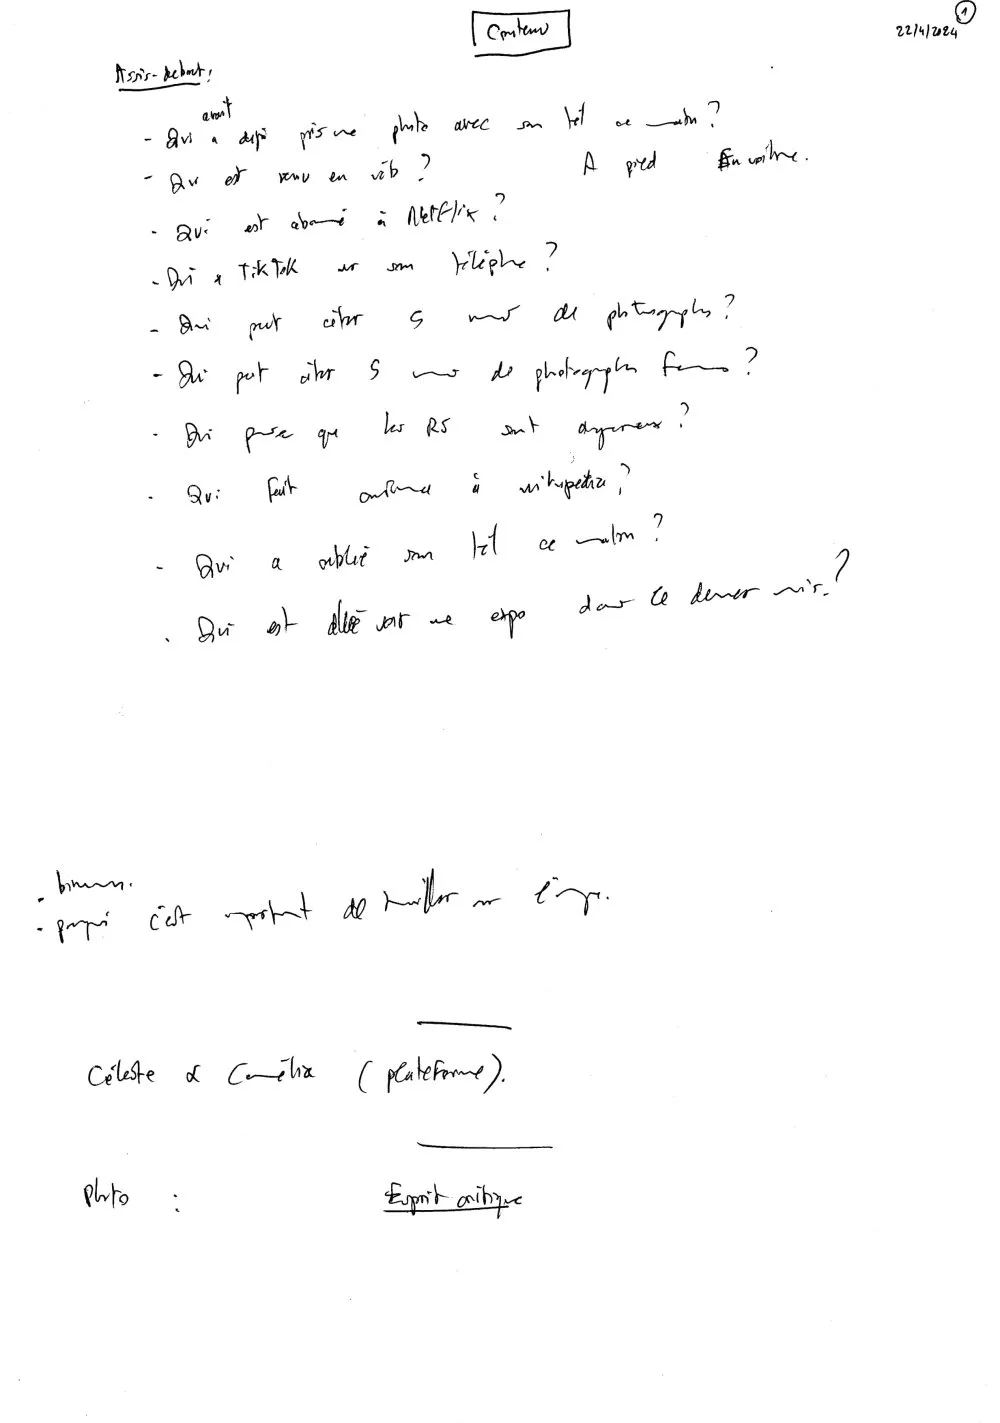 1
22/4/2024
Contenu
Assis-debout :
avant
- Qui a déjà pris une photo avec son tél ce matin ?
- Qui est venu en vélo ? A pied En voiture.
- Qui est abonné à Netflix ?
- Qui a TikTok sur son téléphone ?
- Qui peut citer 5 noms de photographes ?
- Qui peut citer 5 noms de photographes femmes ?
- Qui pense que les RS sont dangereux ?
- Qui fait confiance à wikipédia ?
- Qui a oublié son tél ce matin ?
- Qui est allé voir une expo dans le dernier mois ?
- pourquoi c'est important de travailler sur l'image.
Céleste & Camélia (plateforme).
Photo : Esprit critique